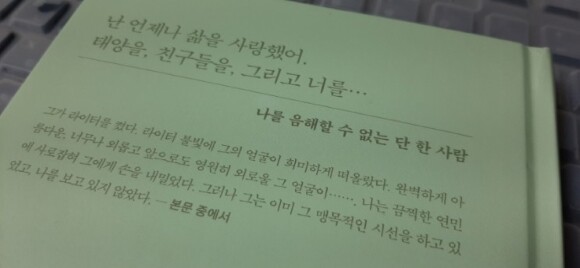 난 언제나 삶을 사랑했어.
태양을, 친구들을, 그리고 너를…
나를 음해할 수 없는 단 한 사람
그가 라이터를 켰다. 라이터 불빛에 그의 얼굴이 희미하게 떠올랐다. 완벽하게 아
름다울, 너무나 외롭고 앞으로도 영원히 외로울 그 얼굴이……. 나는 끔찍한 연민
에 사로잡혀 그에게 손을 내밀었다. 그러나 그는 이미 그 맹목적인 시선을 하고 있
었고, 나를 보고 있지 않았다. — 본문 중에서